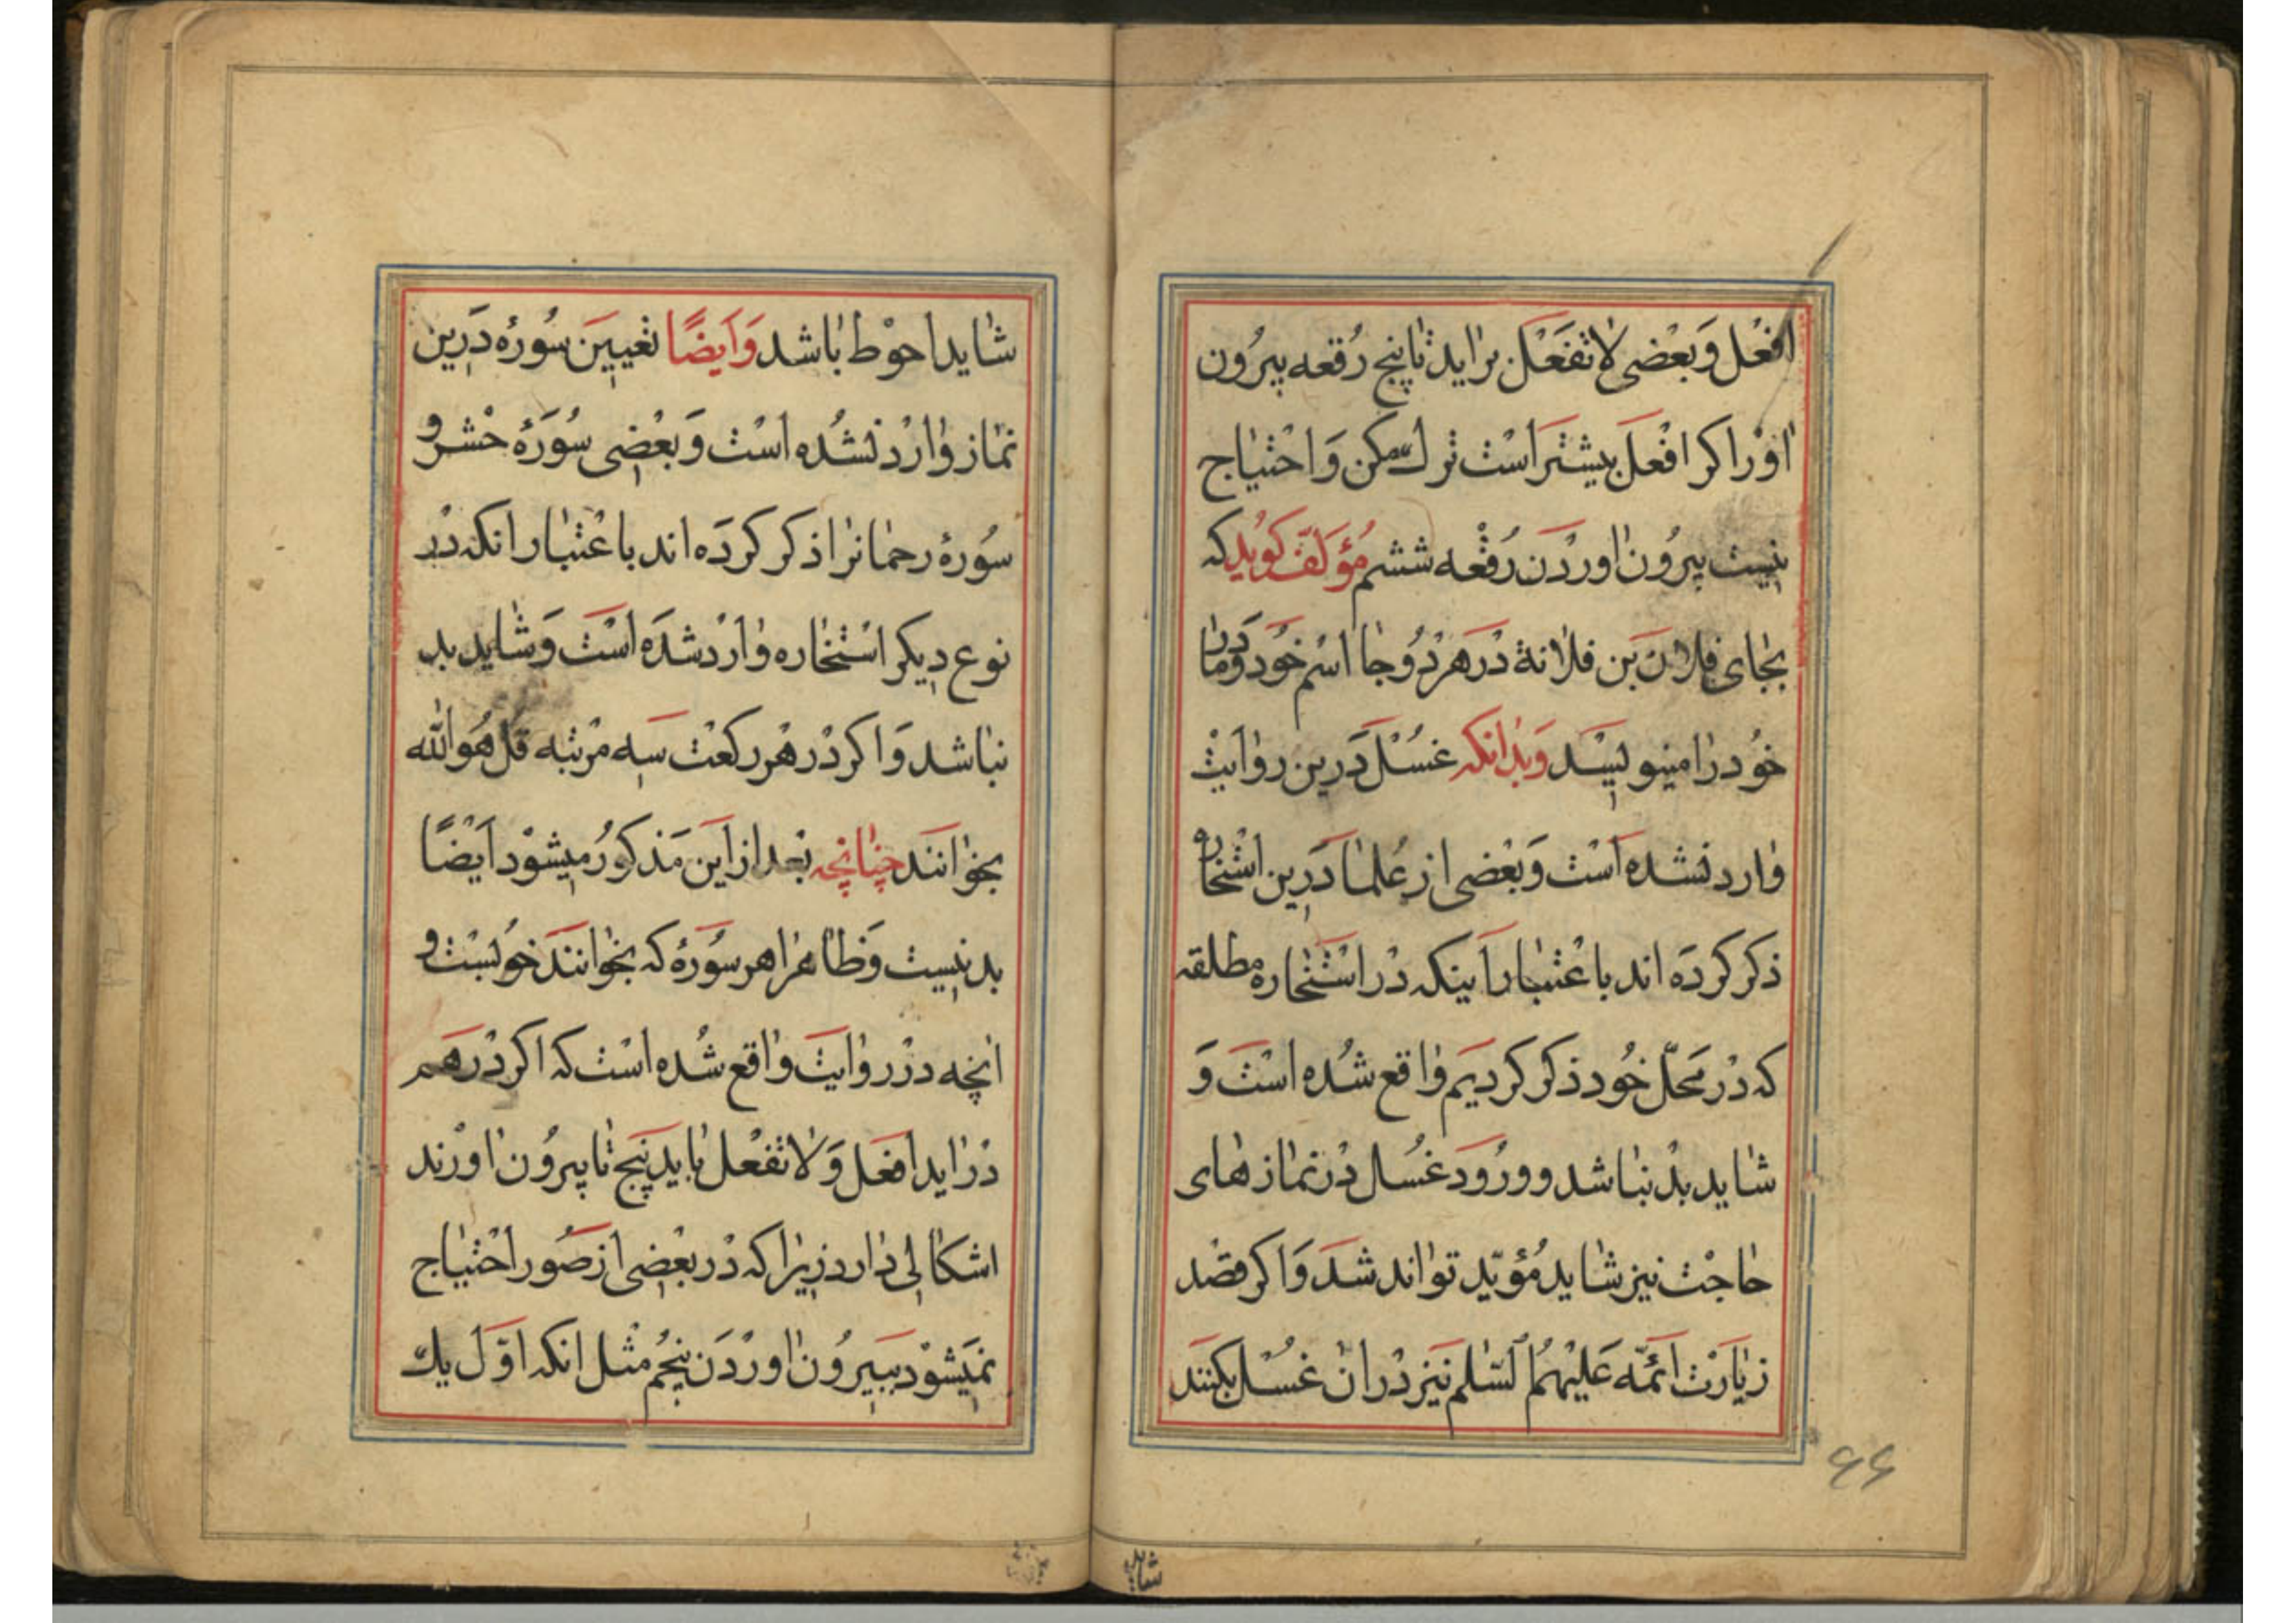 افْعَل وَبَعْضی لاتَفْعَلْ برٰاید تٰاپنج رُقعه بیرُون
اوْرا کر افْعَل بیشتَر اسْت ترك مکن وَاحْتیٰاج
نیست بیرُون اوردَن رُقْعه ششم مُؤلّف کوُید که
بجٰای فلان بَن فلانة دْر هَر دُوجا اسْم خَود وَمادَر
خوُد رٰا مینویسَد وَبدٰانکه غسُل دَرین روٰایتْ
وٰارد نشده اَسْت وَبَعْضی از عُلمٰا دَرین اسْتخاره
ذکر کردَه اند باعْتبٰار اَینکه دْر اسْتخٰاره مطلقه
که دْر مَحلّ خُود ذکر کردیَم وٰاقع شُده اسْتَ وَ
شٰاید بدْ نبٰاشد وورُودَ غسُل دْر نمٰازهٰای
حٰاجْت نیز شٰاید مُؤیّد توٰاند شَد وَاکر قصْد
زیٰارَتْ ائمّه عَلیْهمُ السّلم نیَز دْران غسُل بکنَند
۶۶
شاید
شٰاید احوْط بٰاشد وَاَیضًا تعْییَن سُورۀ دَرین
نمٰاز وٰارْد نشُده اسْت وَبعْضی سُورَۀ حْشر و
سُورۀ رحمٰانرٰا ذکر کردَه اند باعْتبٰار انکه دْر
نوع دیکر اسْتخٰاره وٰارْد شدَه اسْتَ وَشٰاید بد
نبٰاشد وَاکر دْر هْر رکعْت سَه مرْتبه قل هُوالله
بخوٰانَند چنٰانچه بَعد از این مَذکورُ میشوْد اَیضًا
بد نیست وَظاهرا هر سُورَۀ که بخوٰانَند خوُبسْت و
انچه درْ روٰایتَ وٰاقع شُده اسْت که اکر دْر هَم
دْرٰاید افعَل وَلاتفْعل بٰاید پنج تٰا بیرُون اوْرند
اشکٰالی دٰارد زیرٰا که دْر بعْضی از صُور احْتیٰاج
نمیَشوْد ببیرُون اورْدَن پنجُم مثْل انکه اوّل یك